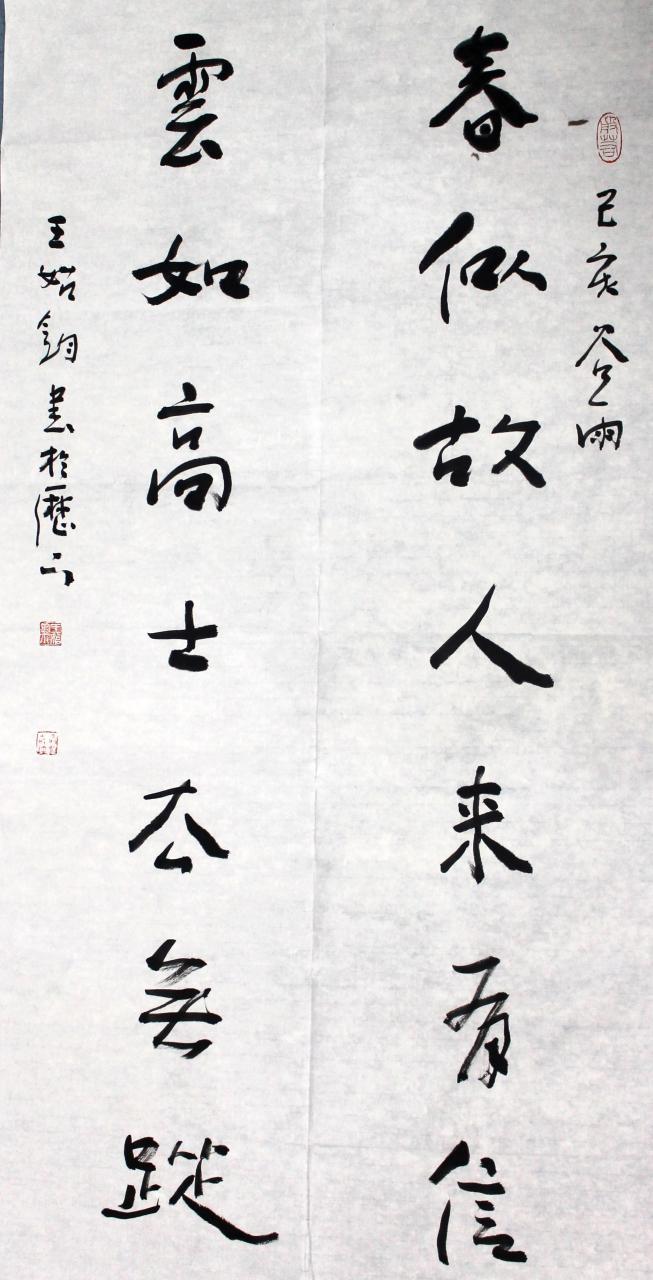 己亥谷雨
春似故人来有信
雲如高士去無蹤
王始鈞書於歷下